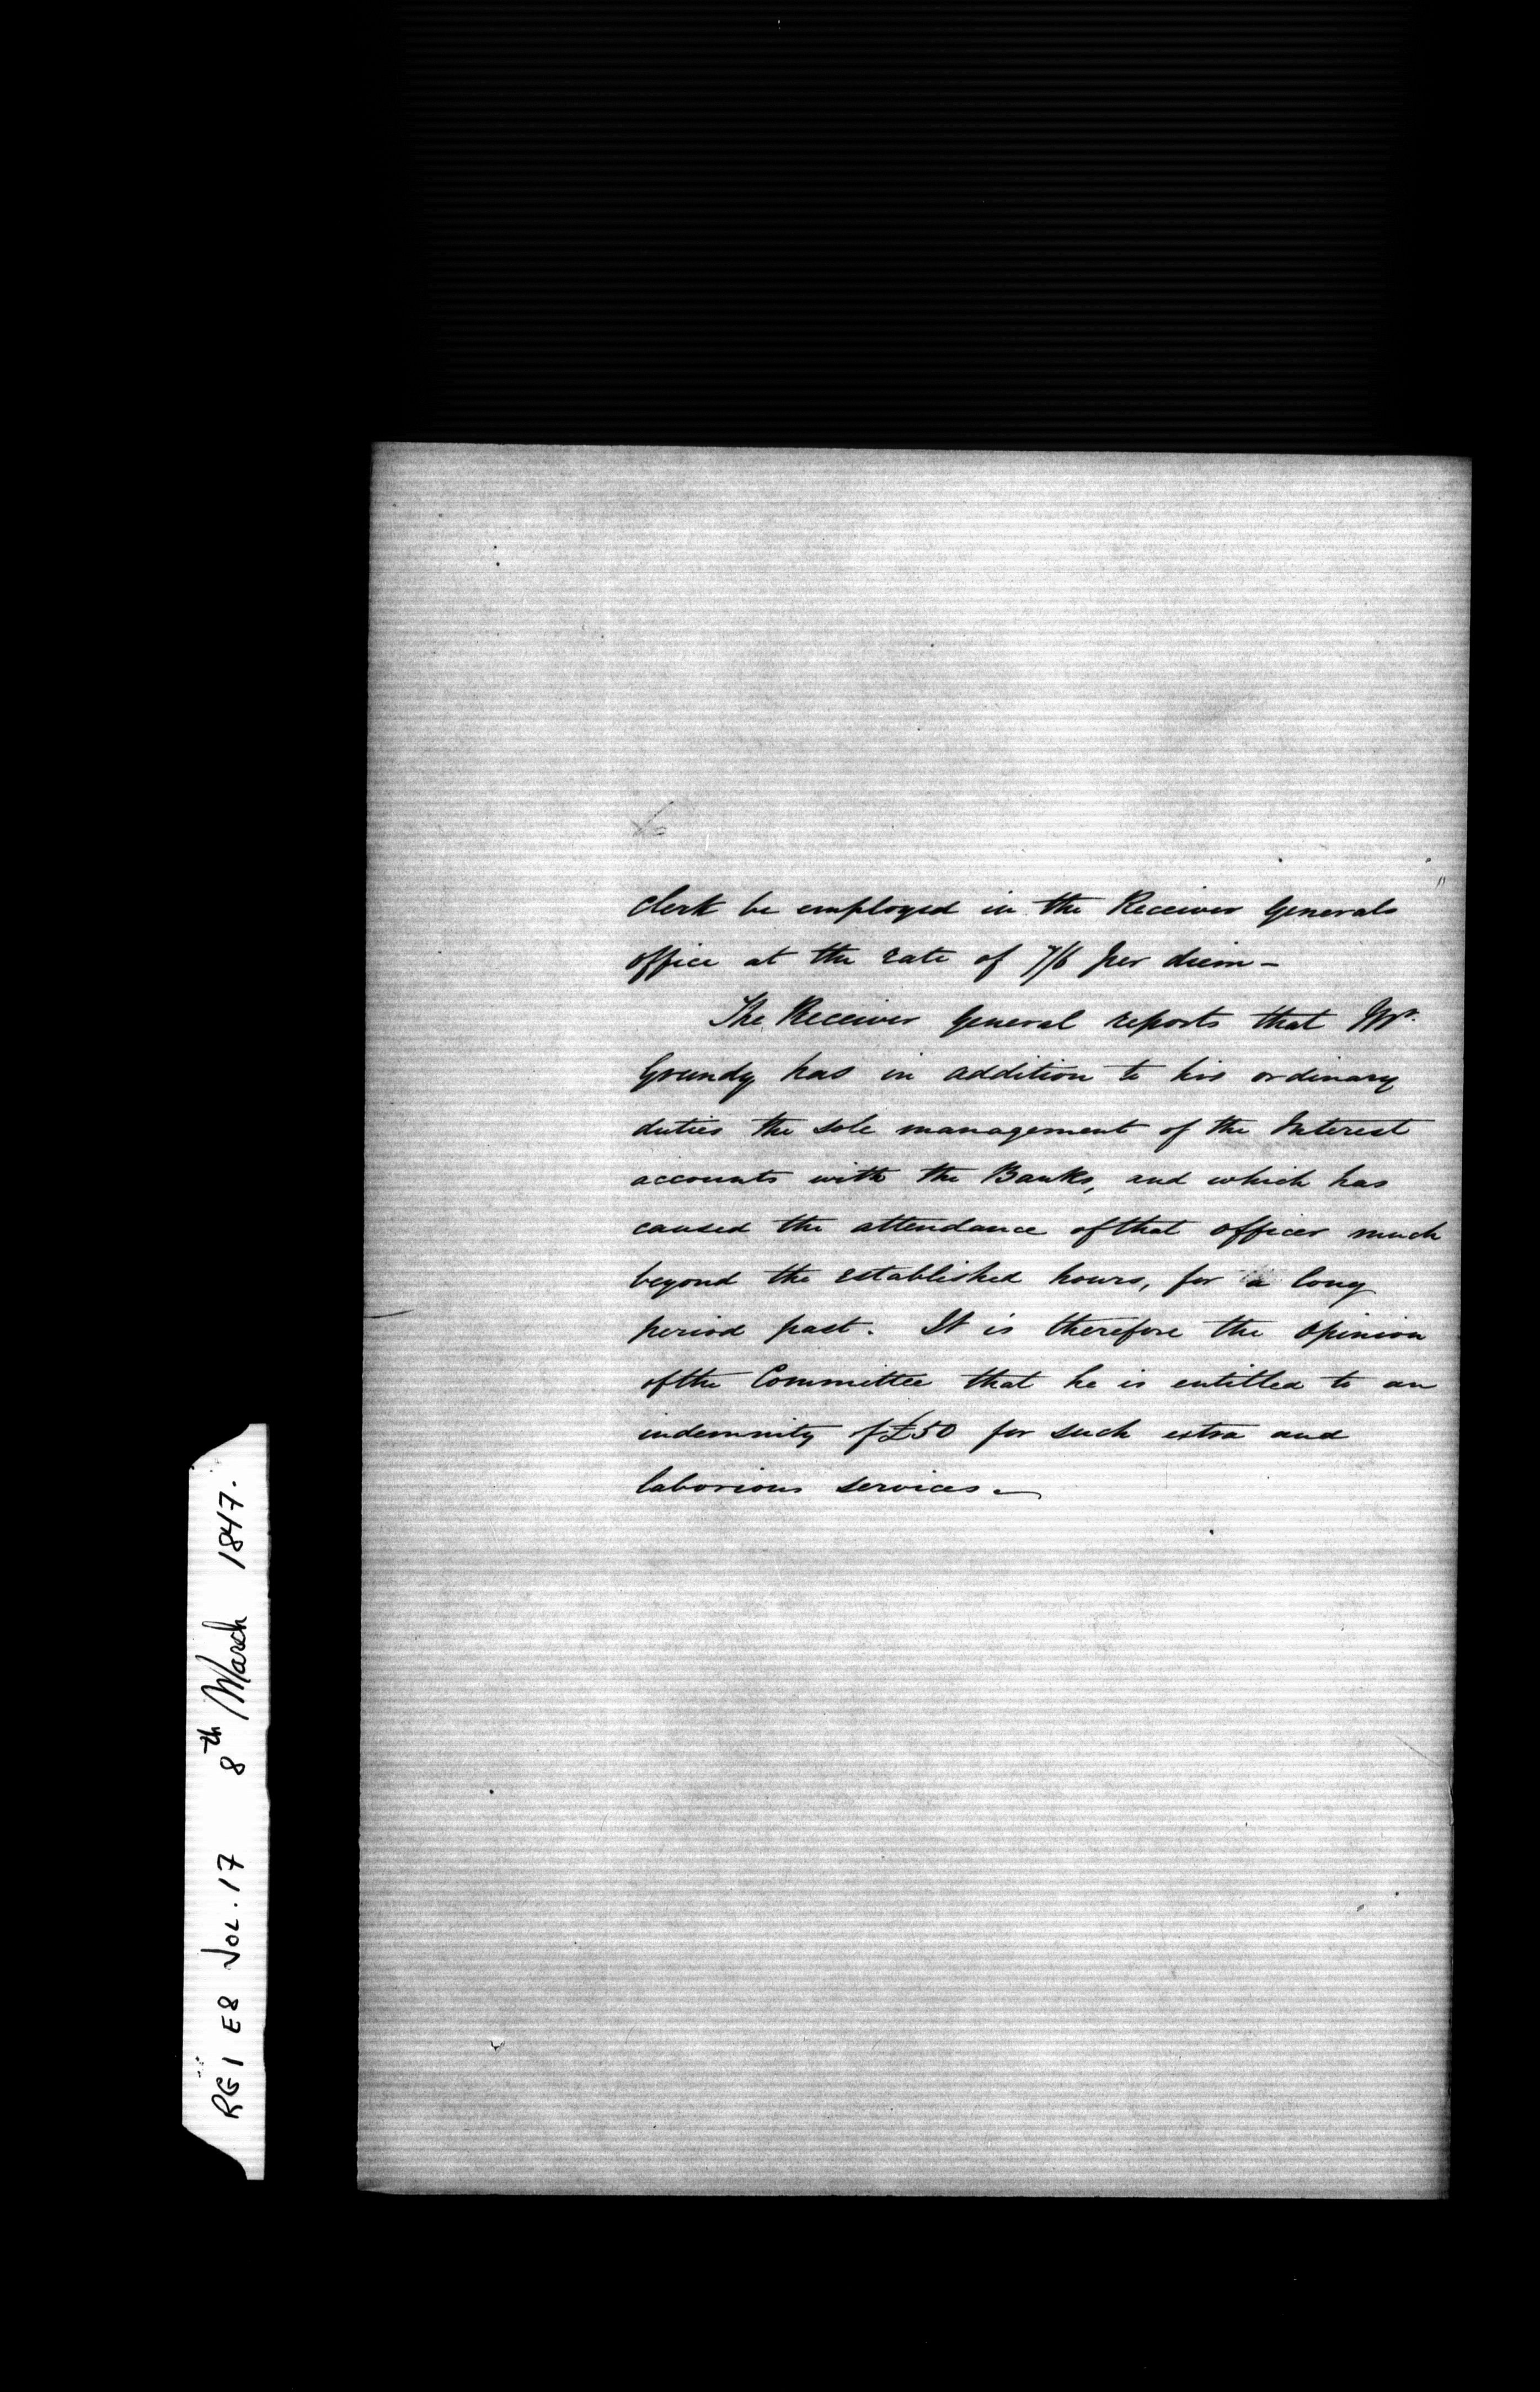 Clerk be employed in the Receiver Generals
office at the rate of 7/6 per diem -
The Receiver General reports that Mr.
Grundy has in addition to his ordinary
duties the sole management of the Interest
accounts with the Banks, and which has
caused the attendance of that officer much
beyond the established hours, for a long
period past. It is therefore the opinion
of the Committee that he is entitled to an
indemnity of £50 for such extra and
laborious services. -
RG 1 E8 VOL. 17 8th March 1847.